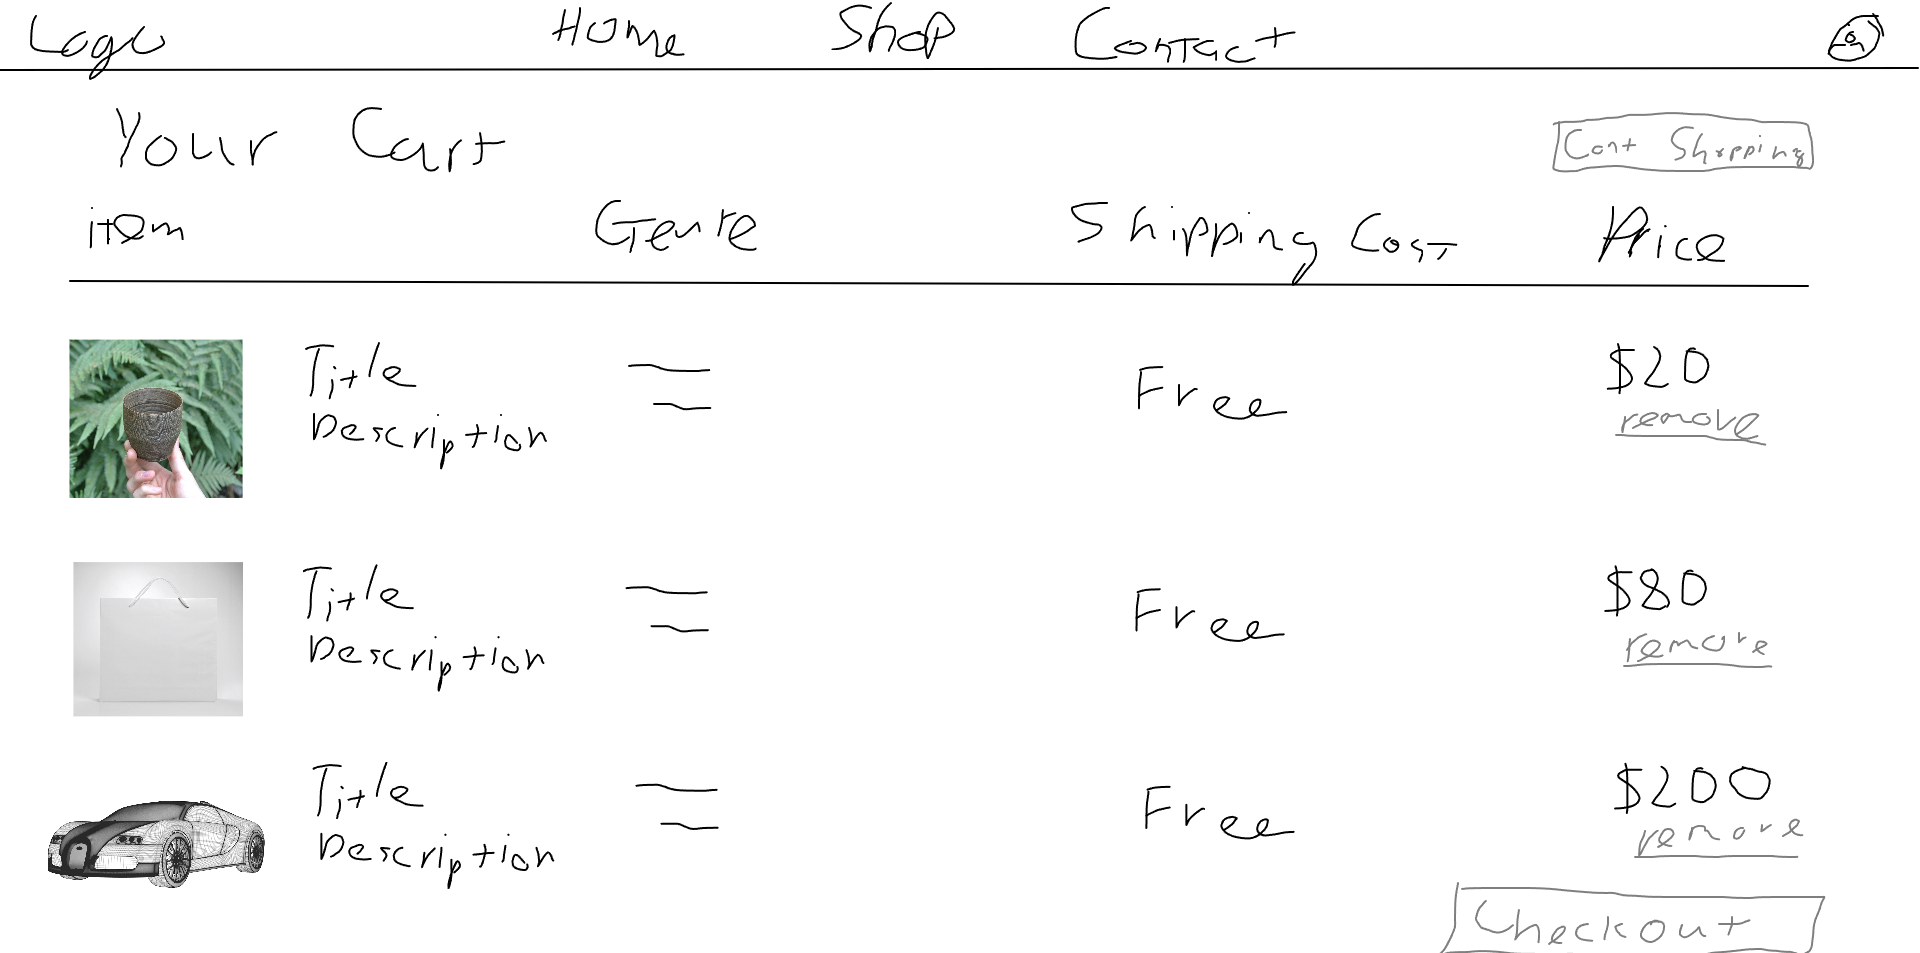 Logo Home Shop Contact
Your Cart
Cont Shopping
item Genre Shipping Cost Price
Title
Description
Free
$20
remove
Title
Description
Free
$80
remove
Title
Description
Free
$200
remove
Checkout